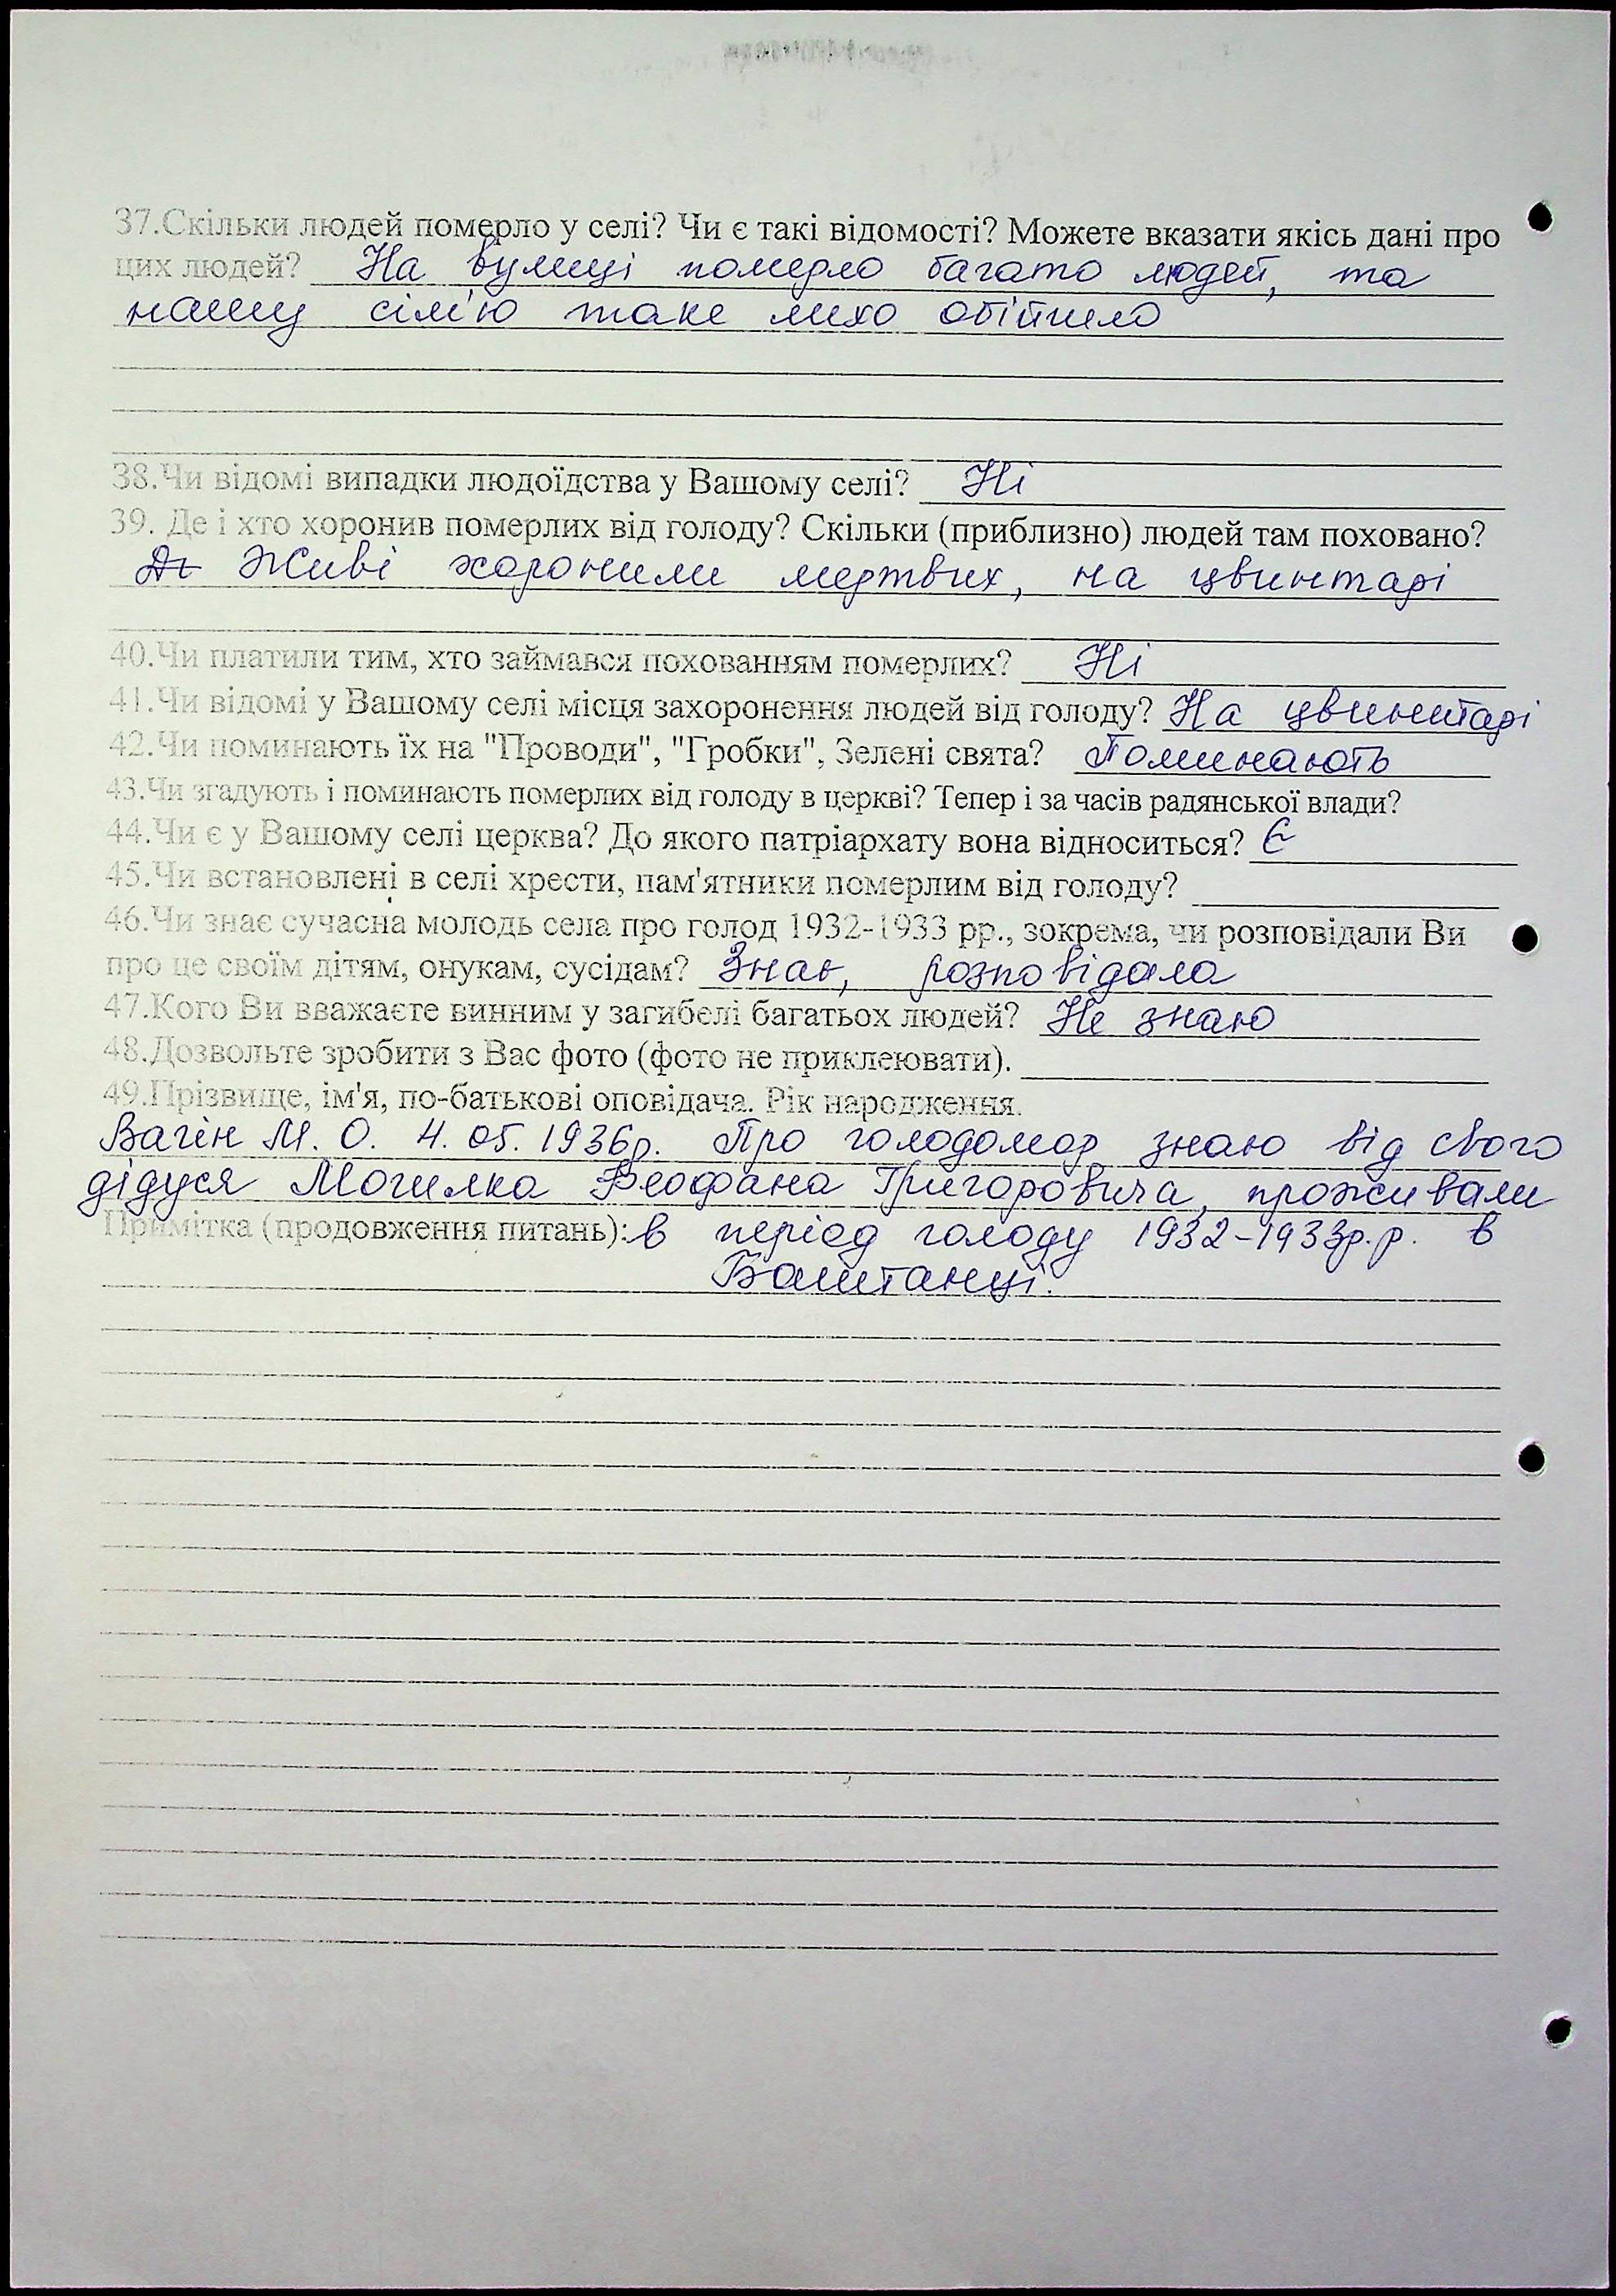 37.Скільки людей померло у селі? Чи є такі відомості? Можете вказати якісь дані про
цих людей? На вулиці померло багато людей, та
нашу сім'ю таке лихо обійшло
38.Чи відомі випадки людоїдства у Вашому селі? Ні
39. Де і хто хоронив померлих від голоду? Скільки (приблизно) людей там поховано?
Живі хоронили мертвих, на цвинтарі
40.Чи платили тим, хто займався похованням померлих? Ні
41.Чи відомі у Вашому селі місця захоронення людей від голоду? На цвинтарі
42.Чи поминають їх на "Проводи", "Гробки", Зелені свята? Поминають
43.Чи згадують і поминають померлих від голоду в церкві? Тепер і за часів радянської влади?
44.Чи є у Вашому селі церква? До якого патріархату вона відноситься? Є
45.Чи встановлені в селі хрести, пам'ятники померлим від голоду?
46.Чи знає сучасна молодь села про голод 1932-1933 рр., зокрема, чи розповідали Ви
про це своїм дітям, онукам, сусідам? Знає, розповідала
47.Кого Ви вважаєте винним у загибелі багатьох людей? Не знаю
48.Дозвольте зробити з Вас фото (фото не приклеювати).
49.Прізвище, ім'я, по-батькові оповідача. Рік народження.
Вагін М. О. 4. 05. 1936р. Про голодомор знаю від свого
дідуся Могилка Феофана Григоровича, проживали
Примітка (продовження питань): в період голоду 1932-1933р.р. в
Баштанці.